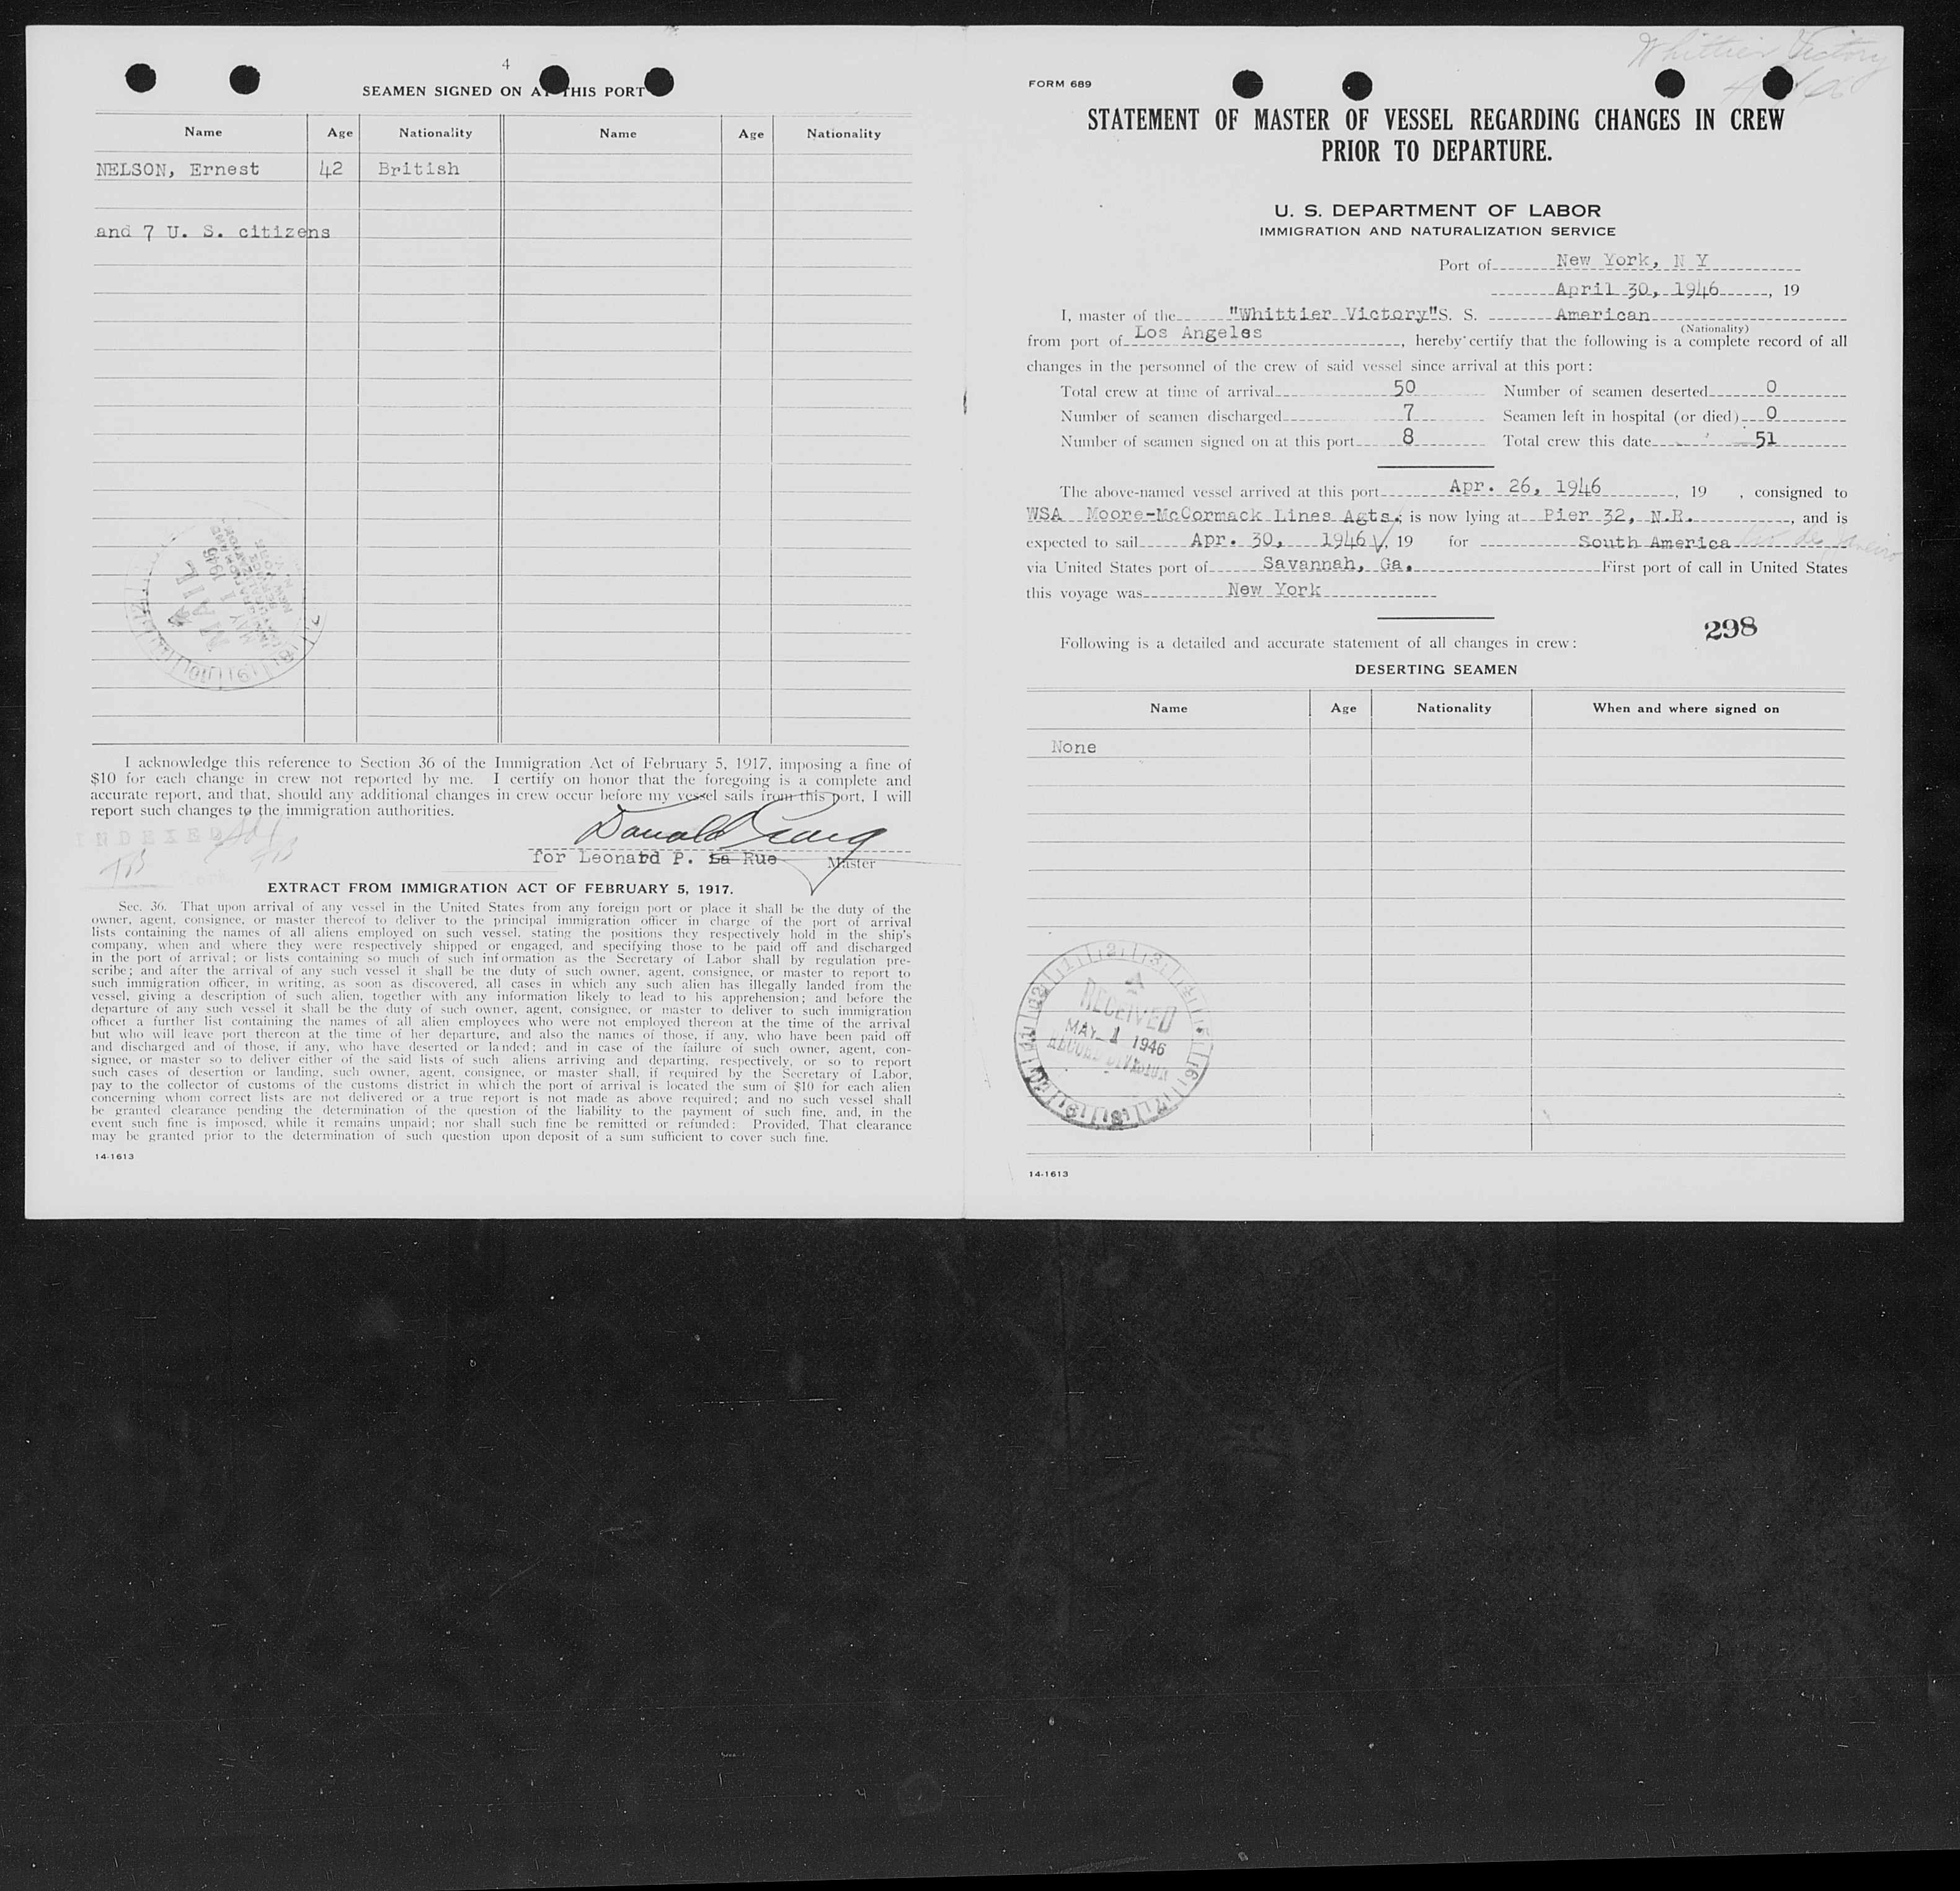 4
SEAMEN SIGNED ON AT THIS PORT
Name Age Nationality Name Age Nationality
NELSON, Ernest 42 British
and 7 U. S. citizens
MAIL
MAY 1 1946
I acknowledge this reference to Section 36 of the Immigration Act of February 5, 1917, imposing a fine of
$10 for each change in crew not reported by me. I certify on honor that the foregoing is a complete and
accurate report, and that, should any additional changes in crew occur before my vessel sails from this port, I will
report such changes to the immigration authorities.
INDEXED
Donald Craig
for Leonard P. La Rue Master
EXTRACT FROM IMMIGRATION ACT OF FEBRUARY 5, 1917.
Sec. 36. That upon arrival of any vessel in the United States from any foreign port or place it shall be the duty of the
owner, agent, consignee, or master thereof to deliver to the principal immigration officer in charge of the port of arrival
lists containing the names of all aliens employed on such vessel, stating the positions they respectively hold in the ship's
company, when and where they were respectively shipped or engaged, and specifying those to be paid off and discharged
in the port of arrival; or lists containing so much of such information as the Secretary of Labor shall by regulation pre-
scribe; and after the arrival of any such vessel it shall be the duty of such owner, agent, consignee, or master to report to
such immigration officer, in writing, as soon as discovered, all cases in which any such alien has illegally landed from the
vessel, giving a description of such alien, together with any information likely to lead to his apprehension; and before the
departure of any such vessel it shall be the duty of such owner, agent, consignee, or master to deliver to such immigration
officer a further list containing the names of all alien employees who were not employed thereon at the time of the arrival
but who will leave port thereon at the time of her departure, and also the names of those, if any, who have been paid off
and discharged and of those, if any, who have deserted or landed; and in case of the failure of such owner, agent, con-
signee, or master so to deliver either of the said lists of such aliens arriving and departing, respectively, or so to report
such cases of desertion or landing, such owner, agent, consignee, or master shall, if required by the Secretary of Labor,
pay to the collector of customs of the customs district in which the port of arrival is located the sum of $10 for each alien
concerning whom correct lists are not delivered or a true report is not made as above required; and no such vessel shall
be granted clearance pending the determination of the question of the liability to the payment of such fine, and, in the
event such fine is imposed, while it remains unpaid; nor shall such fine be remitted or refunded: Provided, That clearance
may be granted prior to the determination of such question upon deposit of a sum sufficient to cover such fine.
14-1613
Whittier Victory
FORM 689
STATEMENT OF MASTER OF VESSEL REGARDING CHANGES IN CREW
PRIOR TO DEPARTURE.
U. S. DEPARTMENT OF LABOR
IMMIGRATION AND NATURALIZATION SERVICE
Port of New York, N Y
April 30, 1946, 19
I, master of the "Whittier Victory" S. S. American
(Nationality)
from port of Los Angeles, hereby certify that the following is a complete record of all
changes in the personnel of the crew of said vessel since arrival at this port:
Total crew at time of arrival 50 Number of seamen deserted 0
Number of seamen discharged 7 Seamen left in hospital (or died) 0
Number of seamen signed on at this port 8 Total crew this date 51
The above-named vessel arrived at this port Apr. 26, 1946, 19 , consigned to
WSA Moore-McCormack Lines Agts.; is now lying at Pier 32, N.R., and is
expected to sail Apr. 30, 1946, 19 for South America Rio de Janeiro
via United States port of Savannah, Ga. First port of call in United States
this voyage was New York
298
Following is a detailed and accurate statement of all changes in crew:
DESERTING SEAMEN
Name Age Nationality When and where signed on
None
RECEIVED
MAY 1 1946
RECORD DIVISION
14-1613